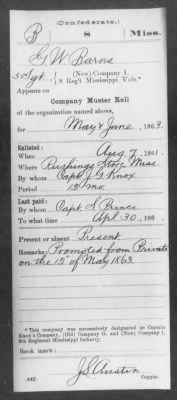 (Confederate.)
B 8 Miss.
G W Barns
5 Sgt., { (New) Company I,
8 Reg't Mississippi Vols.*
Appears on
Company Muster Roll
of the organization named above,
for May & June, 1863.
Enlisted:
When Aug 7, 1861.
Where Rushings Store Miss.
By whom Capt J. G. Knox
Period 12 mo.
Last paid:
By whom Capt. S. Prince
To what time Apr. 30, 186
Present or absent Present
Remarks: Promoted from Private
on the 12" of May 1863.
* This company was successively designated as Captain
Knox's Company, (Old) Company G, and (New) Company I,
8th Regiment Mississippi Infantry.
Book mark:
J S Austin
(642) Copyist.